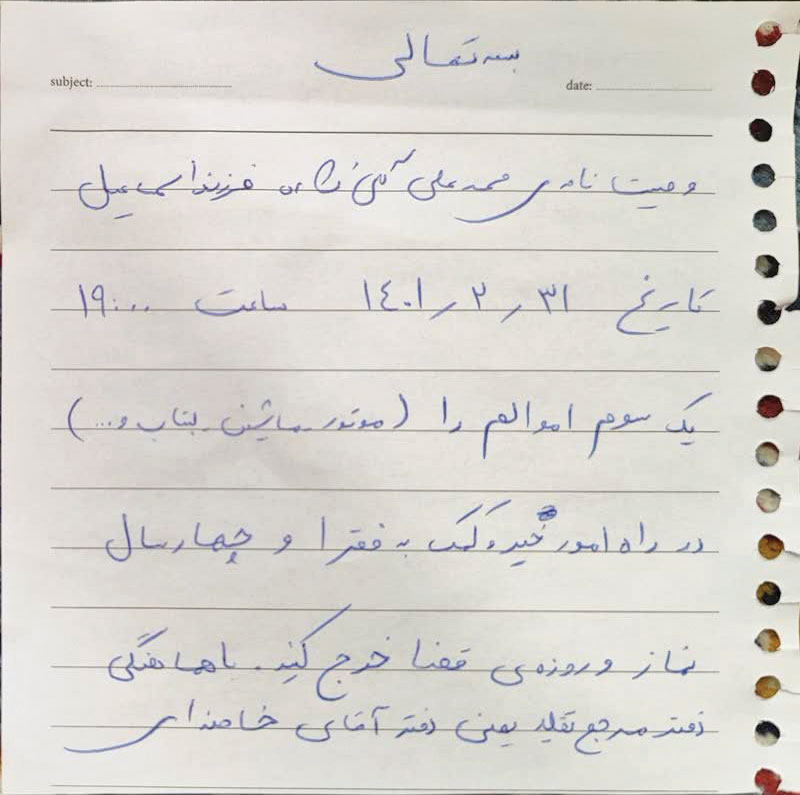 بسه تعالی
subject: date:
وصیت نامه ی محمد علی فرزند اسماعیل
تاریخ ۳۱ ر ۲ ر ۱٤۰۱ ساعت ۱۹:۰۰
یک سوم اموالم را (موتور ـ ماشین ـ لبتاب و...)
در راه امور خیر و کمک به فقرا و چهار سال
نماز و روزه ی قضا خرج کنید. با هماهنگی
دفتر مرجع تقلید یعنی دفتر آقای خامنه ای